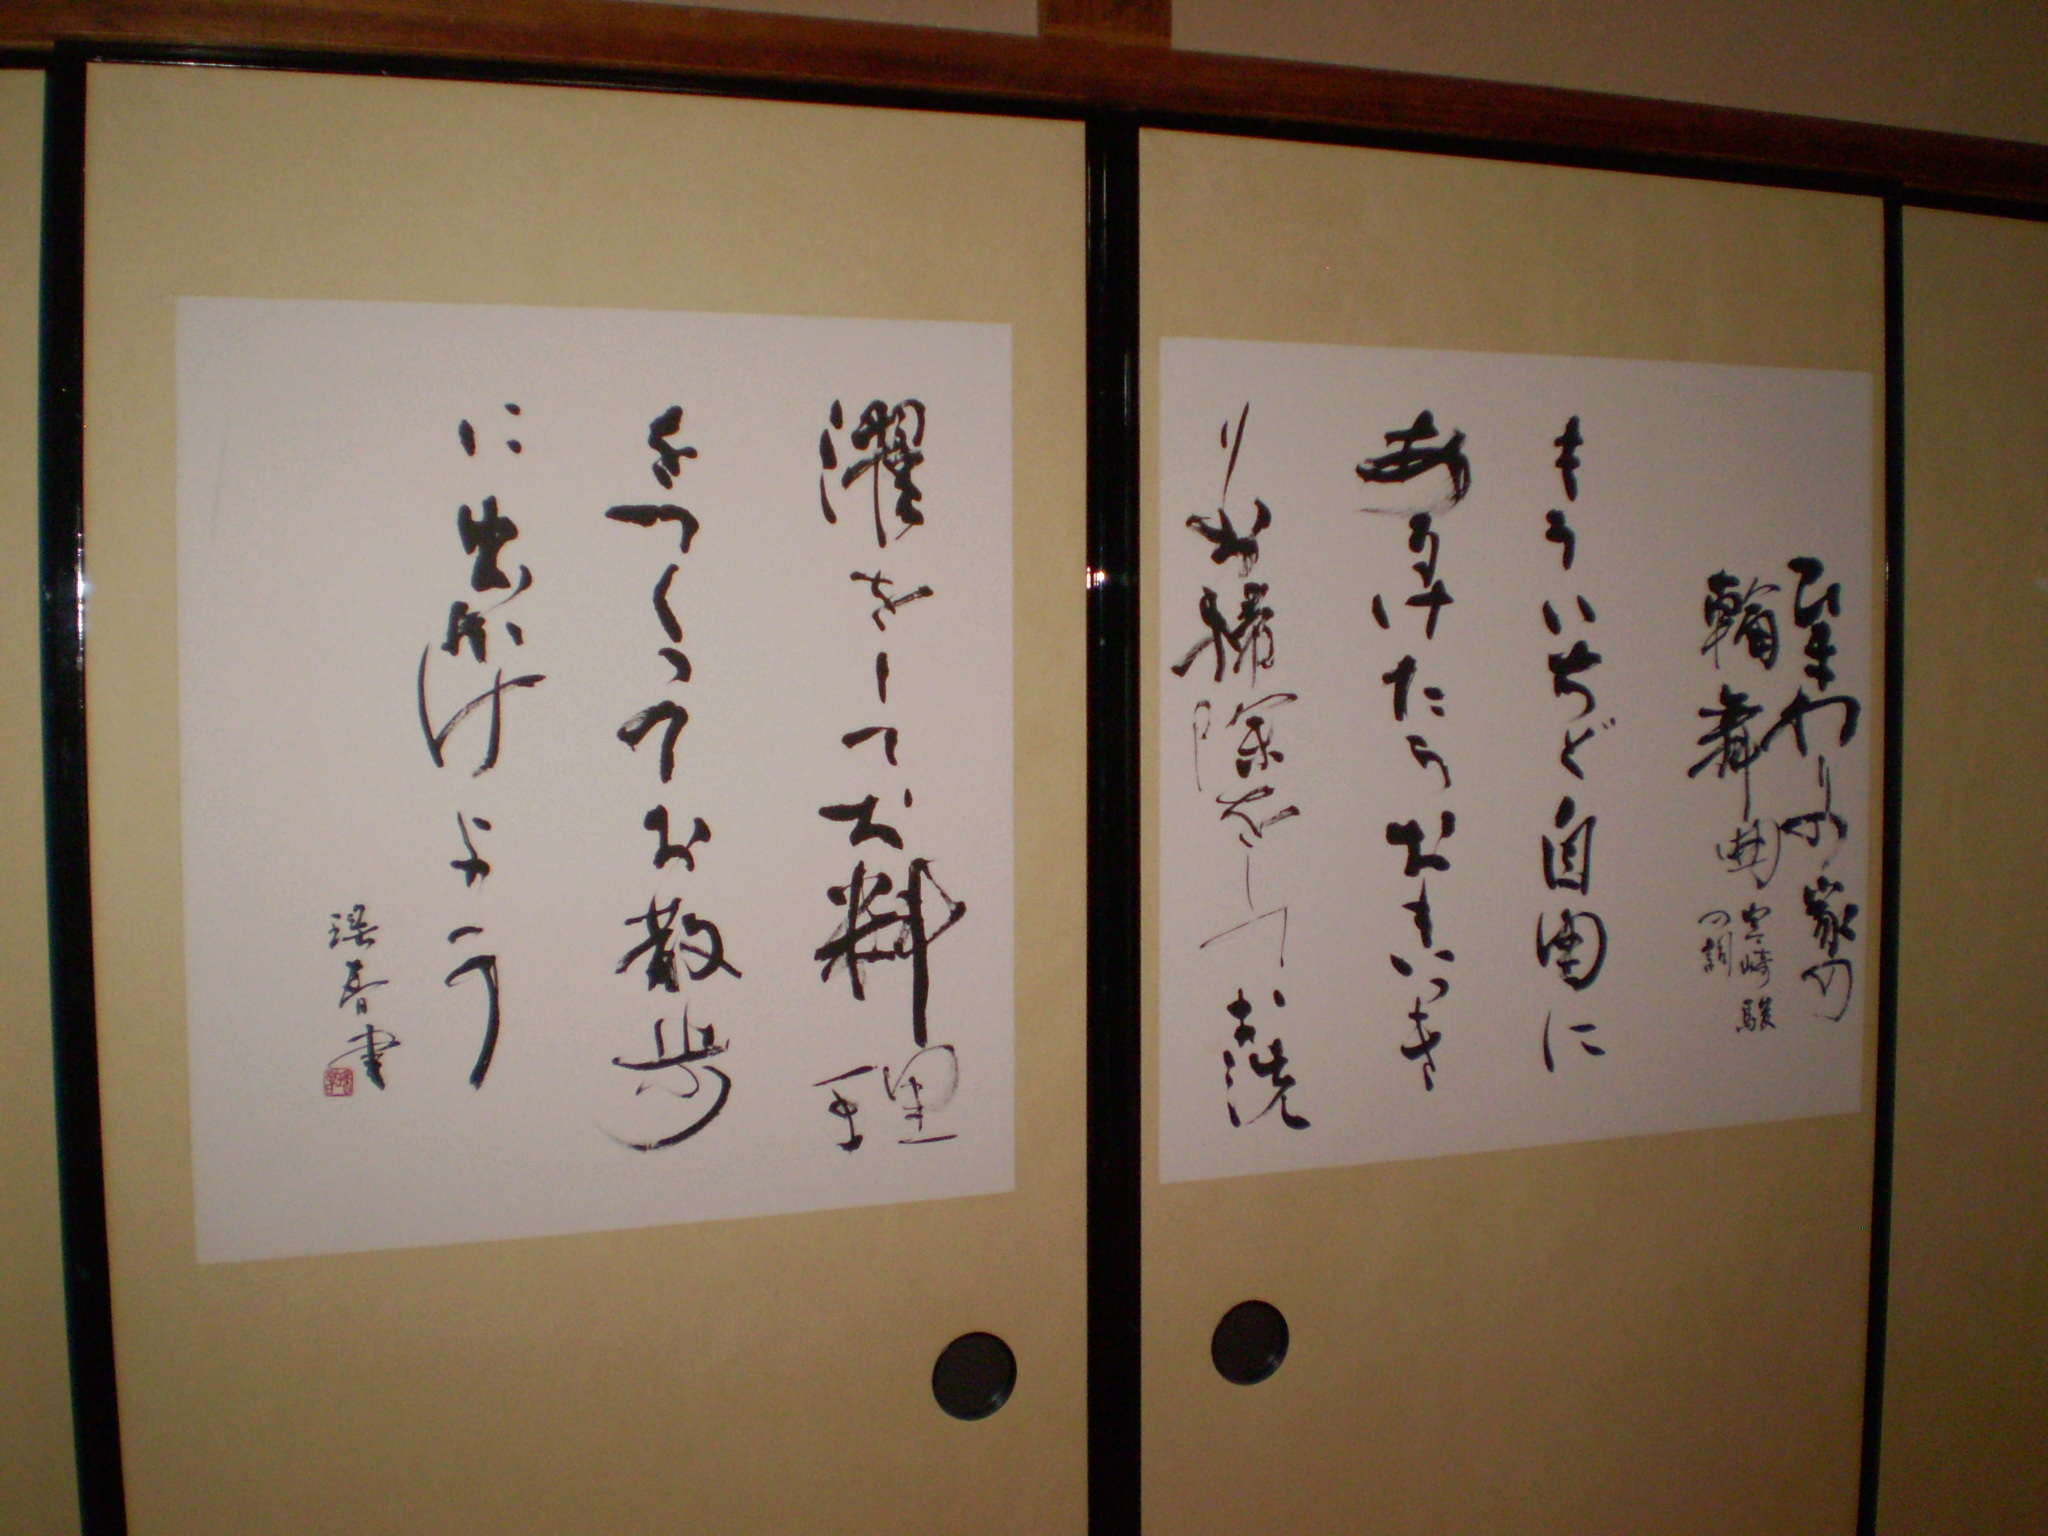 ひまわりの家の
輪舞曲
宮崎駿
の詞
もういちど自由に
あるけたらおもいっき
りお掃除をしてお洗
濯をしてお料理
をつくってお散歩
に出かけよう
瑤春書